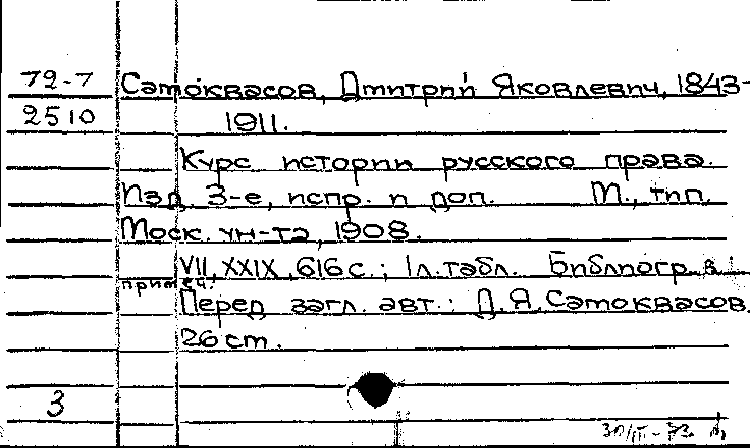 72-7 Самоквасов, Дмитрий Яковлевич, 1843-
2510 1911.
Курс истории русского права.
Изд. 3-е, испр. и доп. М., тип.
Моск. ун-та, 1908.
VII, XXIX, 616 с.; 1 л. табл. Библиогр. в
примеч.
Перед загл. авт.: Д.Я.Самоквасов.
26 см.
3